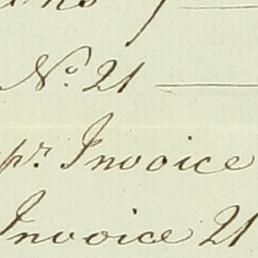 No. 21
pr. Invoice
Invoice 21